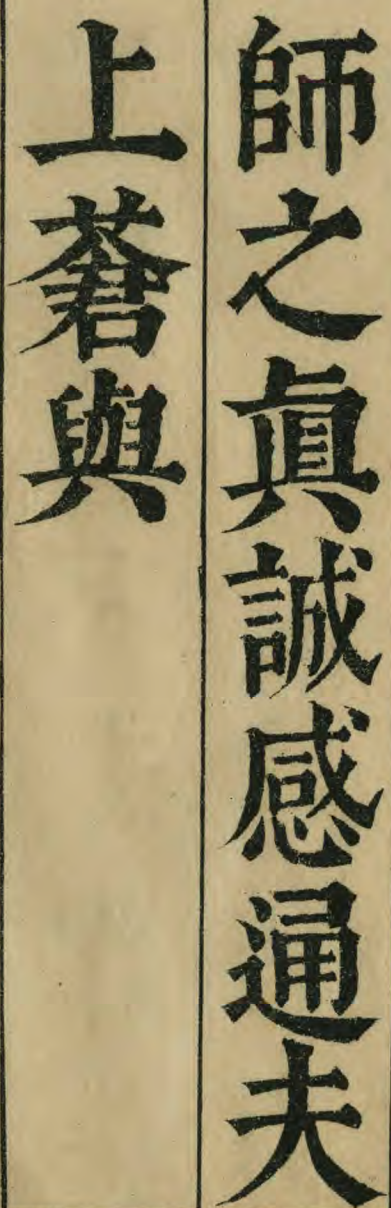 師之眞誠感通夫
上蒼與